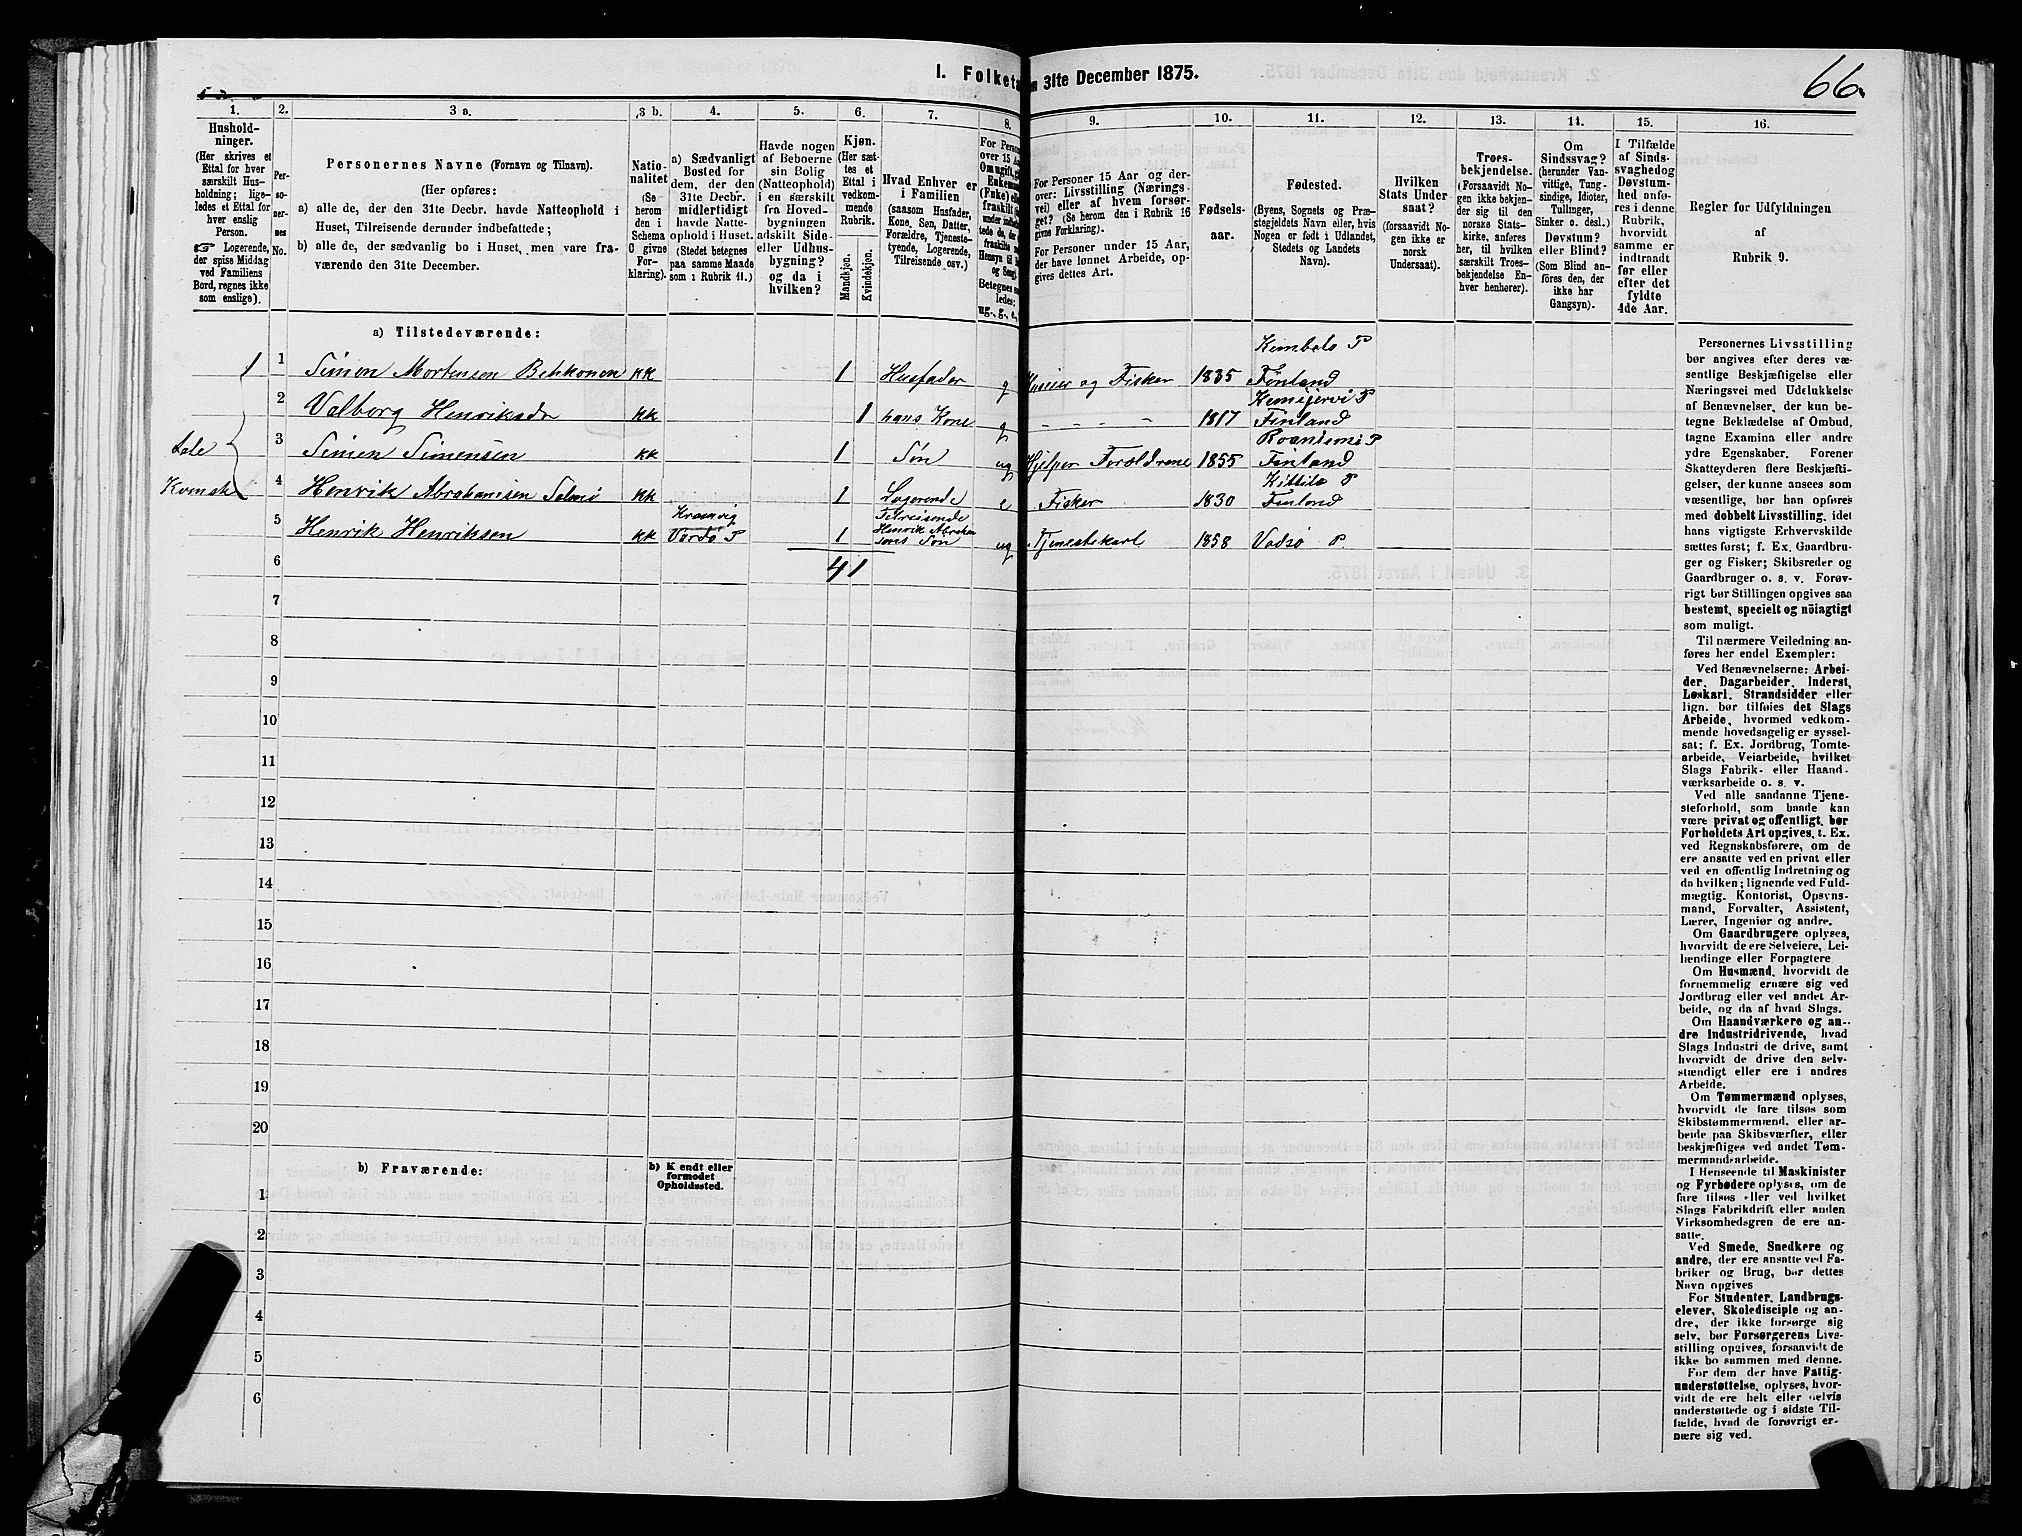 I. Folketæ
n 31te December 1875.
66.
1.
2.
3 a.
3 b.
4.
5.
6.
7.
8.
9.
10.
11.
12.
13.
14.
15.
16.
Hushold-
ninger.
(Her skrives et
Ettal for hver
særskilt Hus-
holdning; lige-
ledes et Ettal for
hver enslig
Person.
☞ Logerende,
der spise Middag
ved Familiens
Bord, regnes ikke
som enslige).
Per-
so-
ner-
nes
No.
Personernes Navne (Fornavn og Tilnavn).
(Her opføres:
a) alle de, der den 31te Decbr. havde Natteophold i
Huset, Tilreisende derunder indbefattede;
b) alle de, der sædvanlig bo i Huset, men vare fra-
værende den 31te December.
Natio-
nalitet
(Se
herom
den i
Schema
O givne
For-
klaring).
a) Sædvanligt
Bosted for
dem, der den
31te Decbr.
midlertidigt
havde Natte-
ophold i Huset.
(Stedet betegnes
paa samme Maade
som i Rubrik 11.)
Havde nogen
af Beboerne
sin Bolig
(Natteophold)
i en særskilt
fra Hoved-
bygningen
adskilt Side-
eller Udhus-
bygning?
og da i
hvilken?
Kjøn.
(Her sæt-
tes et
Ettal i
vedkom-
mende
Rubrik.
Mandkjøn.
Kvindekjøn.
Hvad Enhver er
i Familien
(saasom Husfader,
Kone, Søn, Datter,
Forældre, Tjeneste-
tyende, Logerende,
Tilreisende osv.)
For Person
over 15 Aa
Om ugift, g
Enkema
(Enke) ell
fraskilt
under indb
tede de, de
fraskilte
Hensyn til B
og Seng.
Betegnes sa
ledes:
ug., g., e.,
For Personer 15 Aar og der-
over: Livsstilling (Nærings-
vei) eller af hvem forsør-
get? (Se herom den i Rubrik 16
givne Forklaring).
For Personer under 15 Aar,
der have lønnet Arbeide, op-
gives dettes Art.
Fødsels-
aar.
Fødested.
(Byens, Sognets og Præ-
stegjeldets Navn eller, hvis
Nogen er født i Udlandet,
Stedets og Landets
Navn).
Hvilken
Stats Under
saat?
(forsaavidt No-
gen ikke er
norsk
Undersaat).
Troes-
bekjendelse.
(Forsaavidt No-
gen ikke bekjen-
der sig til den
norske Stats-
kirke, anføres
her, til hvilken
særskilt Troes-
bekjendelse En-
hver henhører).
Om
Sindssvag?
(herunder Van-
vittige, Tung-
sindige, Idioter,
Tullinger,
Sinker o. desl.)
Døvstum?
eller Blind?
(Som Blind an-
føres den, der
ikke har
Gangsyn).
I Tilfælde
af Sinds-
svaghed og
Døvstum-
hed anfø-
res i denne
Rubrik.
hvorvidt
samme er
indtraadt
før eller
efter det
fyldte
4de Aar.
Regler for Udfyldningen
af
Rubrik 9.
a) Tilstedeværende:
1 1 Simon Mortensen Behkonen kk 1 Husfader g Huseier og Fisker 1835 Kimbele P Finland
2 Valborg Henriksdr kk 1 hans Kone g - - - - 1817 Kemijervi P Finland
3 Simon Simensen kk 1 Søn ug Hjelper Forældrene 1855 Roanismi P Finland
4 Henrik Abrahamsen Salmi kk 1 Logerende e Fisker 1830 Kittila P Finland
5 Henrik Henriksen kk Kramvig Vardø P 1 Tilreisende Henrik Abraham sens Søn ug Tjenestekarl 1858 Vadsø P.
tale
Kvensk
6 4 1
7
8
9
10
11
12
13
14
15
16
17
18
19
20
b) Fraværende:
b) Kjendt eller
formodet
Opholdssted.
1
2
3
4
5
6
Personernes Livsstilling
bør angives efter deres væ-
sentlige Beskjæftigelse eller
Næringsvei med Udelukkelse
af Benævnelser, der kun be-
tegne Beklædelse af Ombud,
tagne Examina eller andre
ydre Egenskaber. Forener
Skatteyderen flere Beskjæfti-
gelser, der kunne ansees som
væsentlige, bør han opføres
med dobbelt Livsstilling, idet
hans vigtigste Erhvervskilde
sættes først; f. Ex. Gaardbru-
ger og Fisker; Skibsreder og
Gaardbruger o. s. v. Forøv-
rigt bør Stillingen opgives saa
bestemt, specielt og nöiagtigt
som muligt.
Til nærmere Veiledning an-
føres her endel Exempler:
Ved Benævnelserne: Arbei-
der, Dagarbeider, Inderst,
Løskarl, Strandsidder eller
lign. bør tilføies det Slags
Arbeide, hvormed vedkom-
mende hovedsagelig er syssel-
sat; f. Ex. Jordbrug, Tomte-
arbeide, Veiarbeide, hvilket
Slags Fabrik- eller Haand-
værksarbeide o. s. v.
Ved alle saadanne Tjene-
steforhold, som baade kan
være privat og offentligt, bør
Forholdets Art opgives, t. Ex.
ved Regnskabsførere, om de
ere ansatte ved en privat eller
ved en offentlig Indretning og
da hvilken; lignende ved Fuld-
mægtig, Kontorist, Opsyns-
mand, Forvalter, Assistent,
Lærer, Ingeniør og andre.
Om Gaardbrugere oplyses,
hvorvidt de ere Selveiere, Lei-
lændinge eller Forpagtere.
Om Husmænd, hvorvidt de
fornemmelig ernære sig ved
Jordbrug eller ved andet Ar-
beide, og da af hvad Slags.
Om Haandværkere og an-
dre Industridrivende, hvad
Slags Industri de drive, samt
hvorvidt de drive den selv-
stændigt eller ere i andres
Arbeide.
Om Tømmermænd oplyses,
hvorvidt de fare tilsøs som
Skibstømmermænd, eller ar-
beide paa Skibsværfter, eller
beskjæftiges ved andet Tøm-
mermandsarbeide.
I Henseende til Maskinister
og Fyrbødere oplyses, om de
fare tilsøs eller ved hvilket
Slags Fabrikdrift eller anden
Virksomhedsgren de ere an-
satte.
Ved Smede, Snedkere og
andre, der ere ansatte ved Fa-
briker og Brug, bør dettes
Navn opgives
For Studenter, Landbrugs-
elever, Skoledisciple og an-
dre, der ikke forsørge sig
selv, bør Forsørgerens Livs-
stilling opgives, forsaavidt de
ikke bo sammen med denne.
For dem, der have Fattig-
understøttelse, oplyses, hvor-
vidt de ere helt eller delvis
understøttede og i sidste Til-
fælde, hvad de forøvrigt er-
nære sig ved.